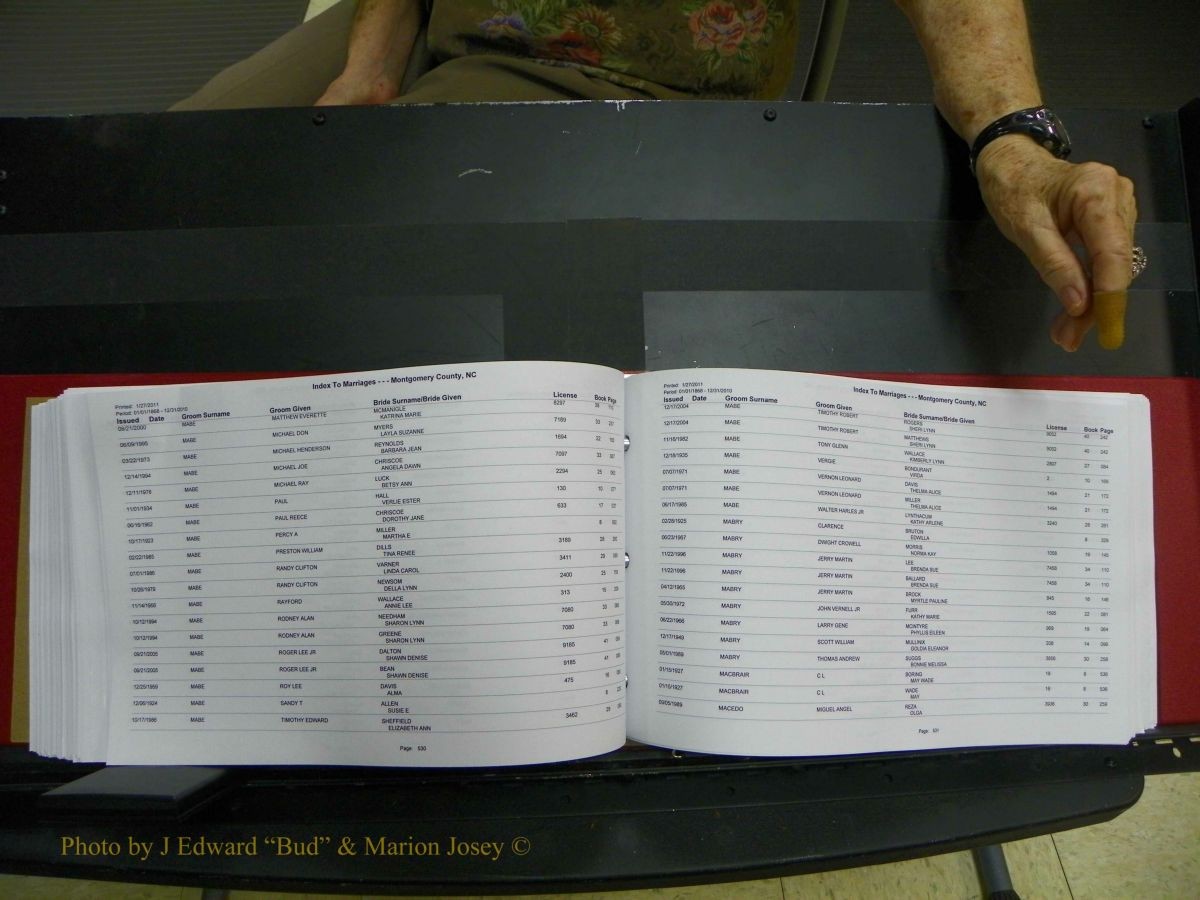 Index To Marriages - - - Montgomery County, NC
Printed: 1/27/2011
Period: 01/01/1868 - 12/31/2010
Issued Date Groom Surname Groom Given Bride Surname/Bride Given License Book Page
08/21/2000 MABE MATTHEW EVERETTE MCMANIGLE 8297
KATRINA MARIE
06/09/1995 MABE MICHAEL DON MYERS 7189
LAYLA SUZANNE
03/22/1973 MABE MICHAEL HENDERSON REYNOLDS 1694
BARBARA JEAN
12/14/1994 MABE MICHAEL JOE CHRISCOE 7097
ANGELA DAWN
12/11/1976 MABE MICHAEL RAY LUCK 2294
BETSY ANN
11/01/1934 MABE PAUL HALL 130
VERLIE ESTER
MABE PAUL REECE CHRISCOE 633
DOROTHY JANE
10/17/1923 MABE PERCY A MILLER
MARTHA E
02/22/1985 MABE PRESTON WILLIAM DILLS 3189
TINA RENEE
07/01/1986 MABE RANDY CLIFTON VARNER 3411
LINDA CAROL
MABE RANDY CLIFTON NEWSOM 2400
DELLA LYNN
MABE RAYFORD WALLACE 313
ANNIE LEE
10/12/1994 MABE RODNEY ALAN NEEDHAM 7080
SHARON LYNN
10/12/1994 MABE RODNEY ALAN GREENE 7080
SHARON LYNN
09/21/2005 MABE ROGER LEE JR DALTON 9185
SHAWN DENISE
09/21/2005 MABE ROGER LEE JR BEAN 9185
SHAWN DENISE
12/25/1959 MABE ROY LEE DAVIS 475
ALMA
12/06/1924 MABE SANDY T ALLEN
SUSIE E
10/17/1986 MABE TIMOTHY EDWARD SHEFFIELD 3462
ELIZABETH ANN
Page: 530
Index To Marriages - - - Montgomery County, NC
Printed: 1/27/2011
Period: 01/01/1868 - 12/31/2010
Issued Date Groom Surname Groom Given Bride Surname/Bride Given License Book Page
12/17/2004 MABE TIMOTHY ROBERT ROGERS 9052 40 242
SHERI LYNN
12/17/2004 MABE TIMOTHY ROBERT MATTHEWS 9052 40 242
SHERI LYNN
11/16/1982 MABE TONY GLENN WALLACE 2807 27 084
KIMBERLY LYNN
12/18/1935 MABE VERGIE BONDURANT 10
VIRDA
07/07/1971 MABE VERNON LEONARD DAVIS 1494 21 172
THELMA ALICE
07/07/1971 MABE VERNON LEONARD MILLER 1494 21 172
THELMA ALICE
06/17/1985 MABE WALTER HARLES JR LYNTHACUM 3240
KATHY ARLENE
02/28/1925 MABRY CLARENCE BRUTON 8
EDWILLA
MABRY DWIGHT CROWELL MORRIS
NORMA KAY
11/22/1996 MABRY JERRY MARTIN LEE 7458 34 110
BRENDA SUE
11/22/1996 MABRY JERRY MARTIN BALLARD 7458 34 110
BRENDA SUE
04/12/1965 MABRY JERRY MARTIN BROCK 845
MYRTLE PAULINE
MABRY JOHN VERNELL JR FURR 1595 22
KATHY MARIE
06/22/1966 MABRY LARRY GENE MCINTYRE 969
PHYLLIS EILEEN
12/17/1949 MABRY SCOTT WILLIAM MULLINIX 14
GOLDIA ELEANOR
MABRY THOMAS ANDREW SUGGS 30
BONNIE MELISSA
01/15/1927 MACBRAIR C L BORING 19 8 536
MAY WADE
01/15/1927 MACBRAIR C L WADE 19 8 536
MAY
09/05/1989 MACEDO MIGUEL ANGEL REZA 3936 30 259
OLGA
Page: 531
Photo by J Edward “Bud” & Marion Josey ©